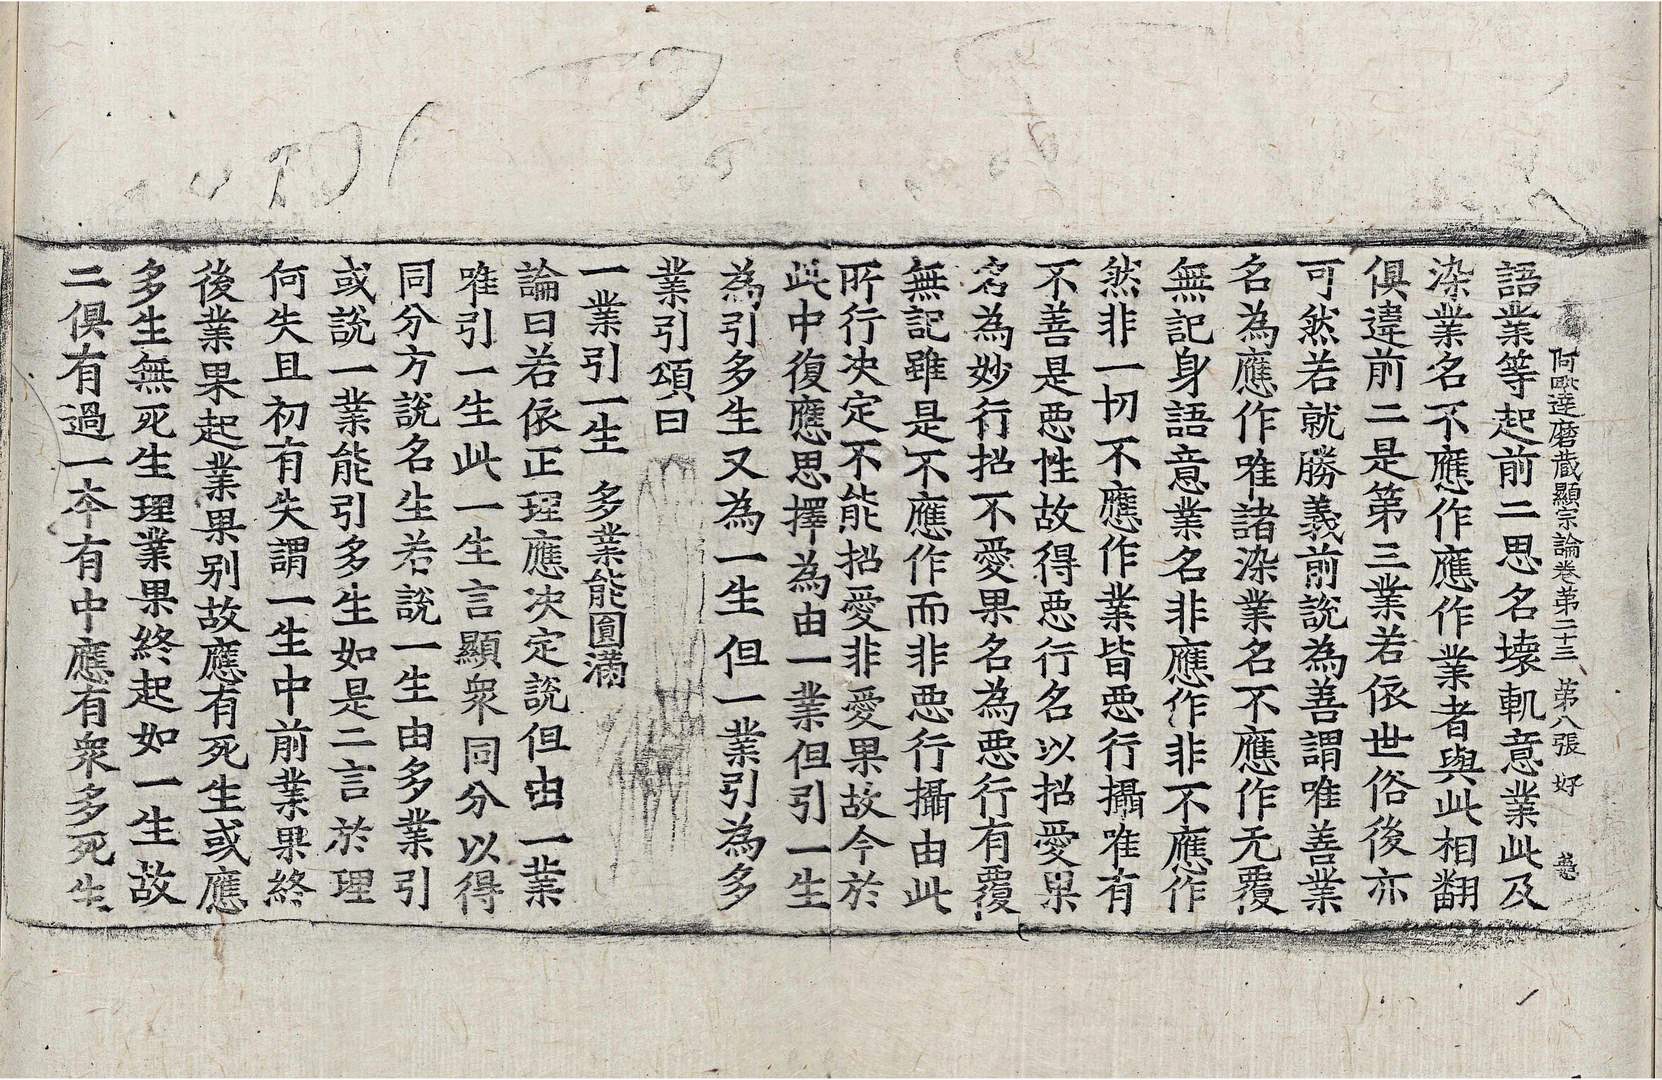 阿毗達磨藏顯宗論卷第二十三 第八張 好
語業等起前二思名壞軌意業此及
染業名不應作應作業者與此相翻
俱違前二是第三業若依世俗後亦
可然若就勝義前說為善謂唯善業
名為應作唯諸染業名不應作无覆
無記身語意業名非應作非不應作
然非一切不應作業皆惡行攝唯有
不善是惡性故得惡行名以招愛果
名為妙行招不愛果名為惡行有覆
無記雖是不應作而非惡行攝由此
所行決定不能招愛非愛果故今於
此中復應思擇為由一業但引一生
為引多生又為一生但一業引為多
業引頌曰
一業引一生 多業能圓滿
論曰若依正理應決定說但由一業
唯引一生此一生言顯眾同分以得
同分方說名生若說一生由多業引
或說一業能引多生如是二言於理
何失且初有失謂一生中前業果終
後業果起業果別故應有死生或應
多生無死生理業果終起如一生故
二俱有過一本有中應有眾多死生